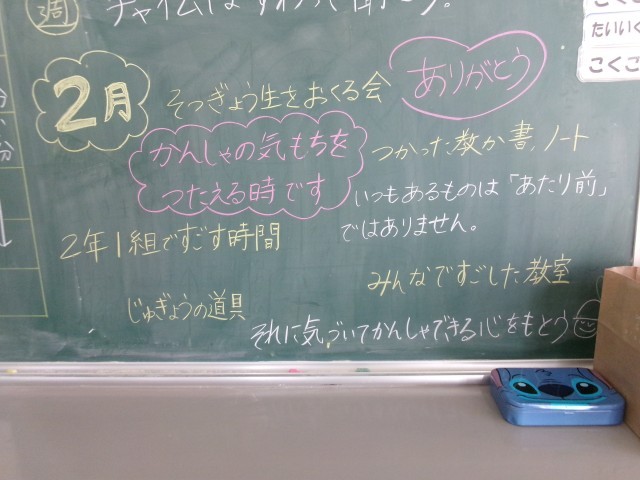 週
チャイムはすわって聞こう。
たいいく
こくご
2月
そつぎょう生をおくる会
ありがとう
かんしゃの気もちを
つたえる時です
つかった教か書、ノート
いつもあるものは「あたり前」
ではありません。
2年1組ですごす時間
みんなですごした教室
じゅぎょうの道具
それに気づいてかんしゃできる心をもとう